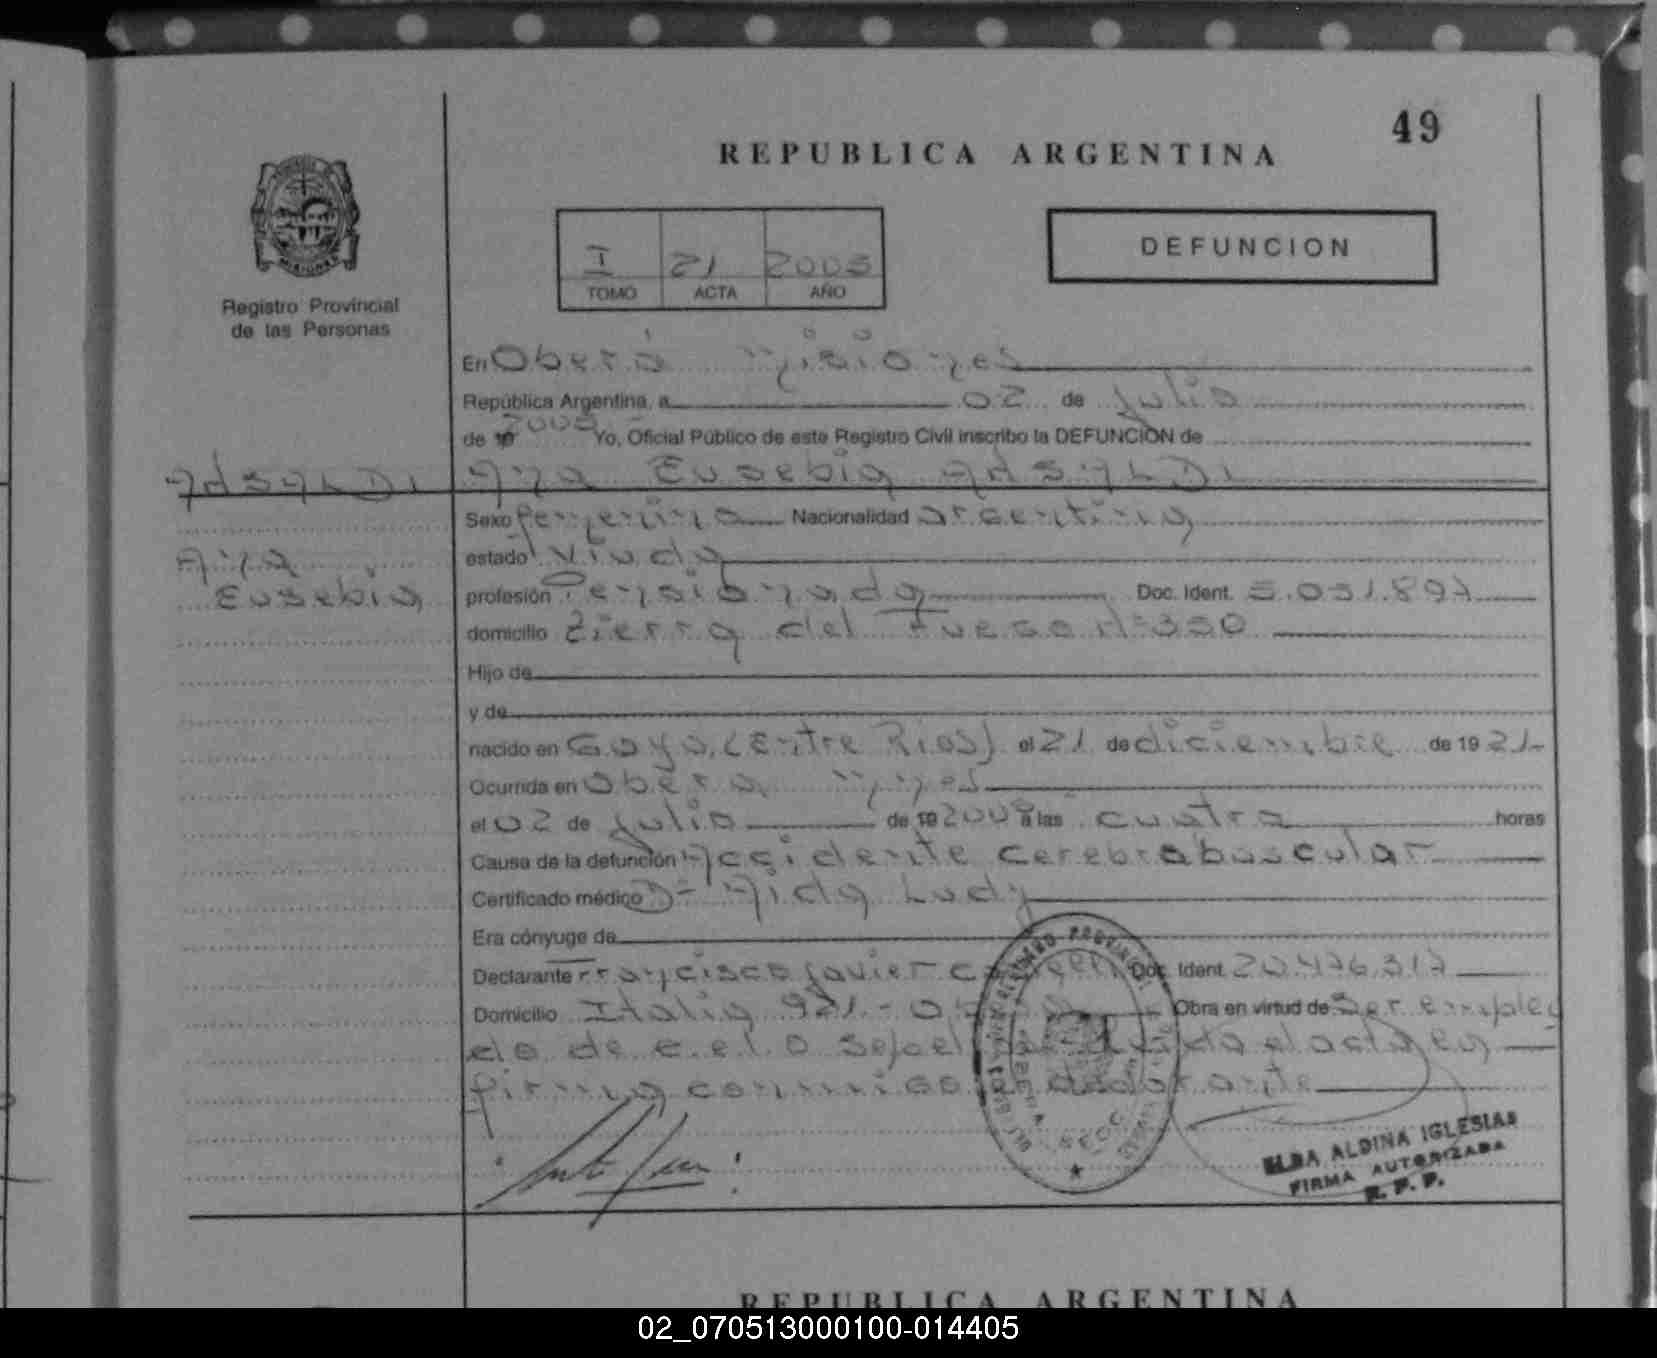 49
REPUBLICA ARGENTINA
DEFUNCION
I 21 2005
TOMO ACTA AÑO
MISIONES
Registro Provincial
de las Personas
En Oberá Misiones
República Argentina, a 02 de julio
de 19 2005 Yo, Oficial Público de este Registro Civil inscribo la DEFUNCION de
Ana Eusebia
Ana
Eusebia
Sexo femenino Nacionalidad argentina
estado viuda
profesión Pensionada Doc. Ident. 5.031.897
domicilio Tierra del Fuego Nº 350
Hijo de
y de
nacido en Goya (Entre Rios) el 21 de diciembre de 1921
Ocurrida en Oberá Mnes
el 02 de julio de 19 2005 a las cuatro horas
Causa de la defunción Accidente cerebrabascular
Certificado médico Aida Ludy
Era cónyuge de
Declarante Francisco Javier Doc. Ident. 20.476.317
Domicilio Italia 921 - Obra en virtud de Ser emplea
do de c.e.l.o el acta
firma conmigo declarante
REGISTRO PROVINCIAL
ELBA ALDINA IGLESIAS
FIRMA AUTORIZADA
R. P. P.
REPUBLICA ARGENTINA
02_070513000100-014405